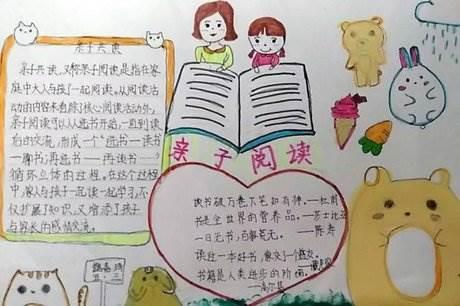 亲子共读
亲子共读,又称亲子阅读,是指在家
庭中大人与孩子一起阅读,从阅读活
动的内容来看,除了核心阅读活动外,
亲子阅读可以从选书开始,一直到读
后的交流,形成一个"选书——读书
——聊书,再选书——再读书——"
循环立体的过程,在这个过程
中,家人与孩子一起读一起学习,不
仅扩展了知识,又增添了孩子
与家长的感情交流。
亲子阅读
读书破万卷下笔如有神。——杜甫
书是全世界的营养品。——莎士比亚
一日无书,百事荒无。——陈寿
读过一本好书,像交了一个益友。
书籍是人类进步的阶梯。
——高尔基